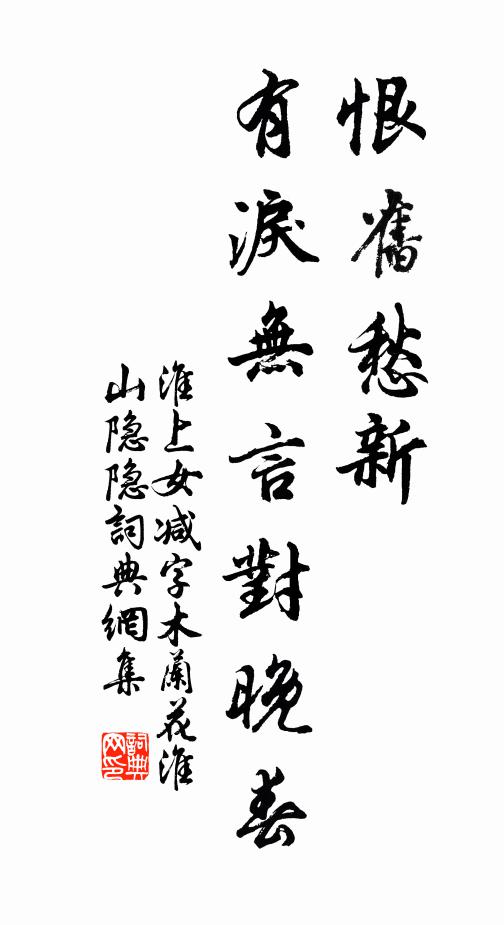 恨舊愁新
有淚無言對晚春
淮上女减字木蘭花淮
山隐隐詞典網集
詞典
网印